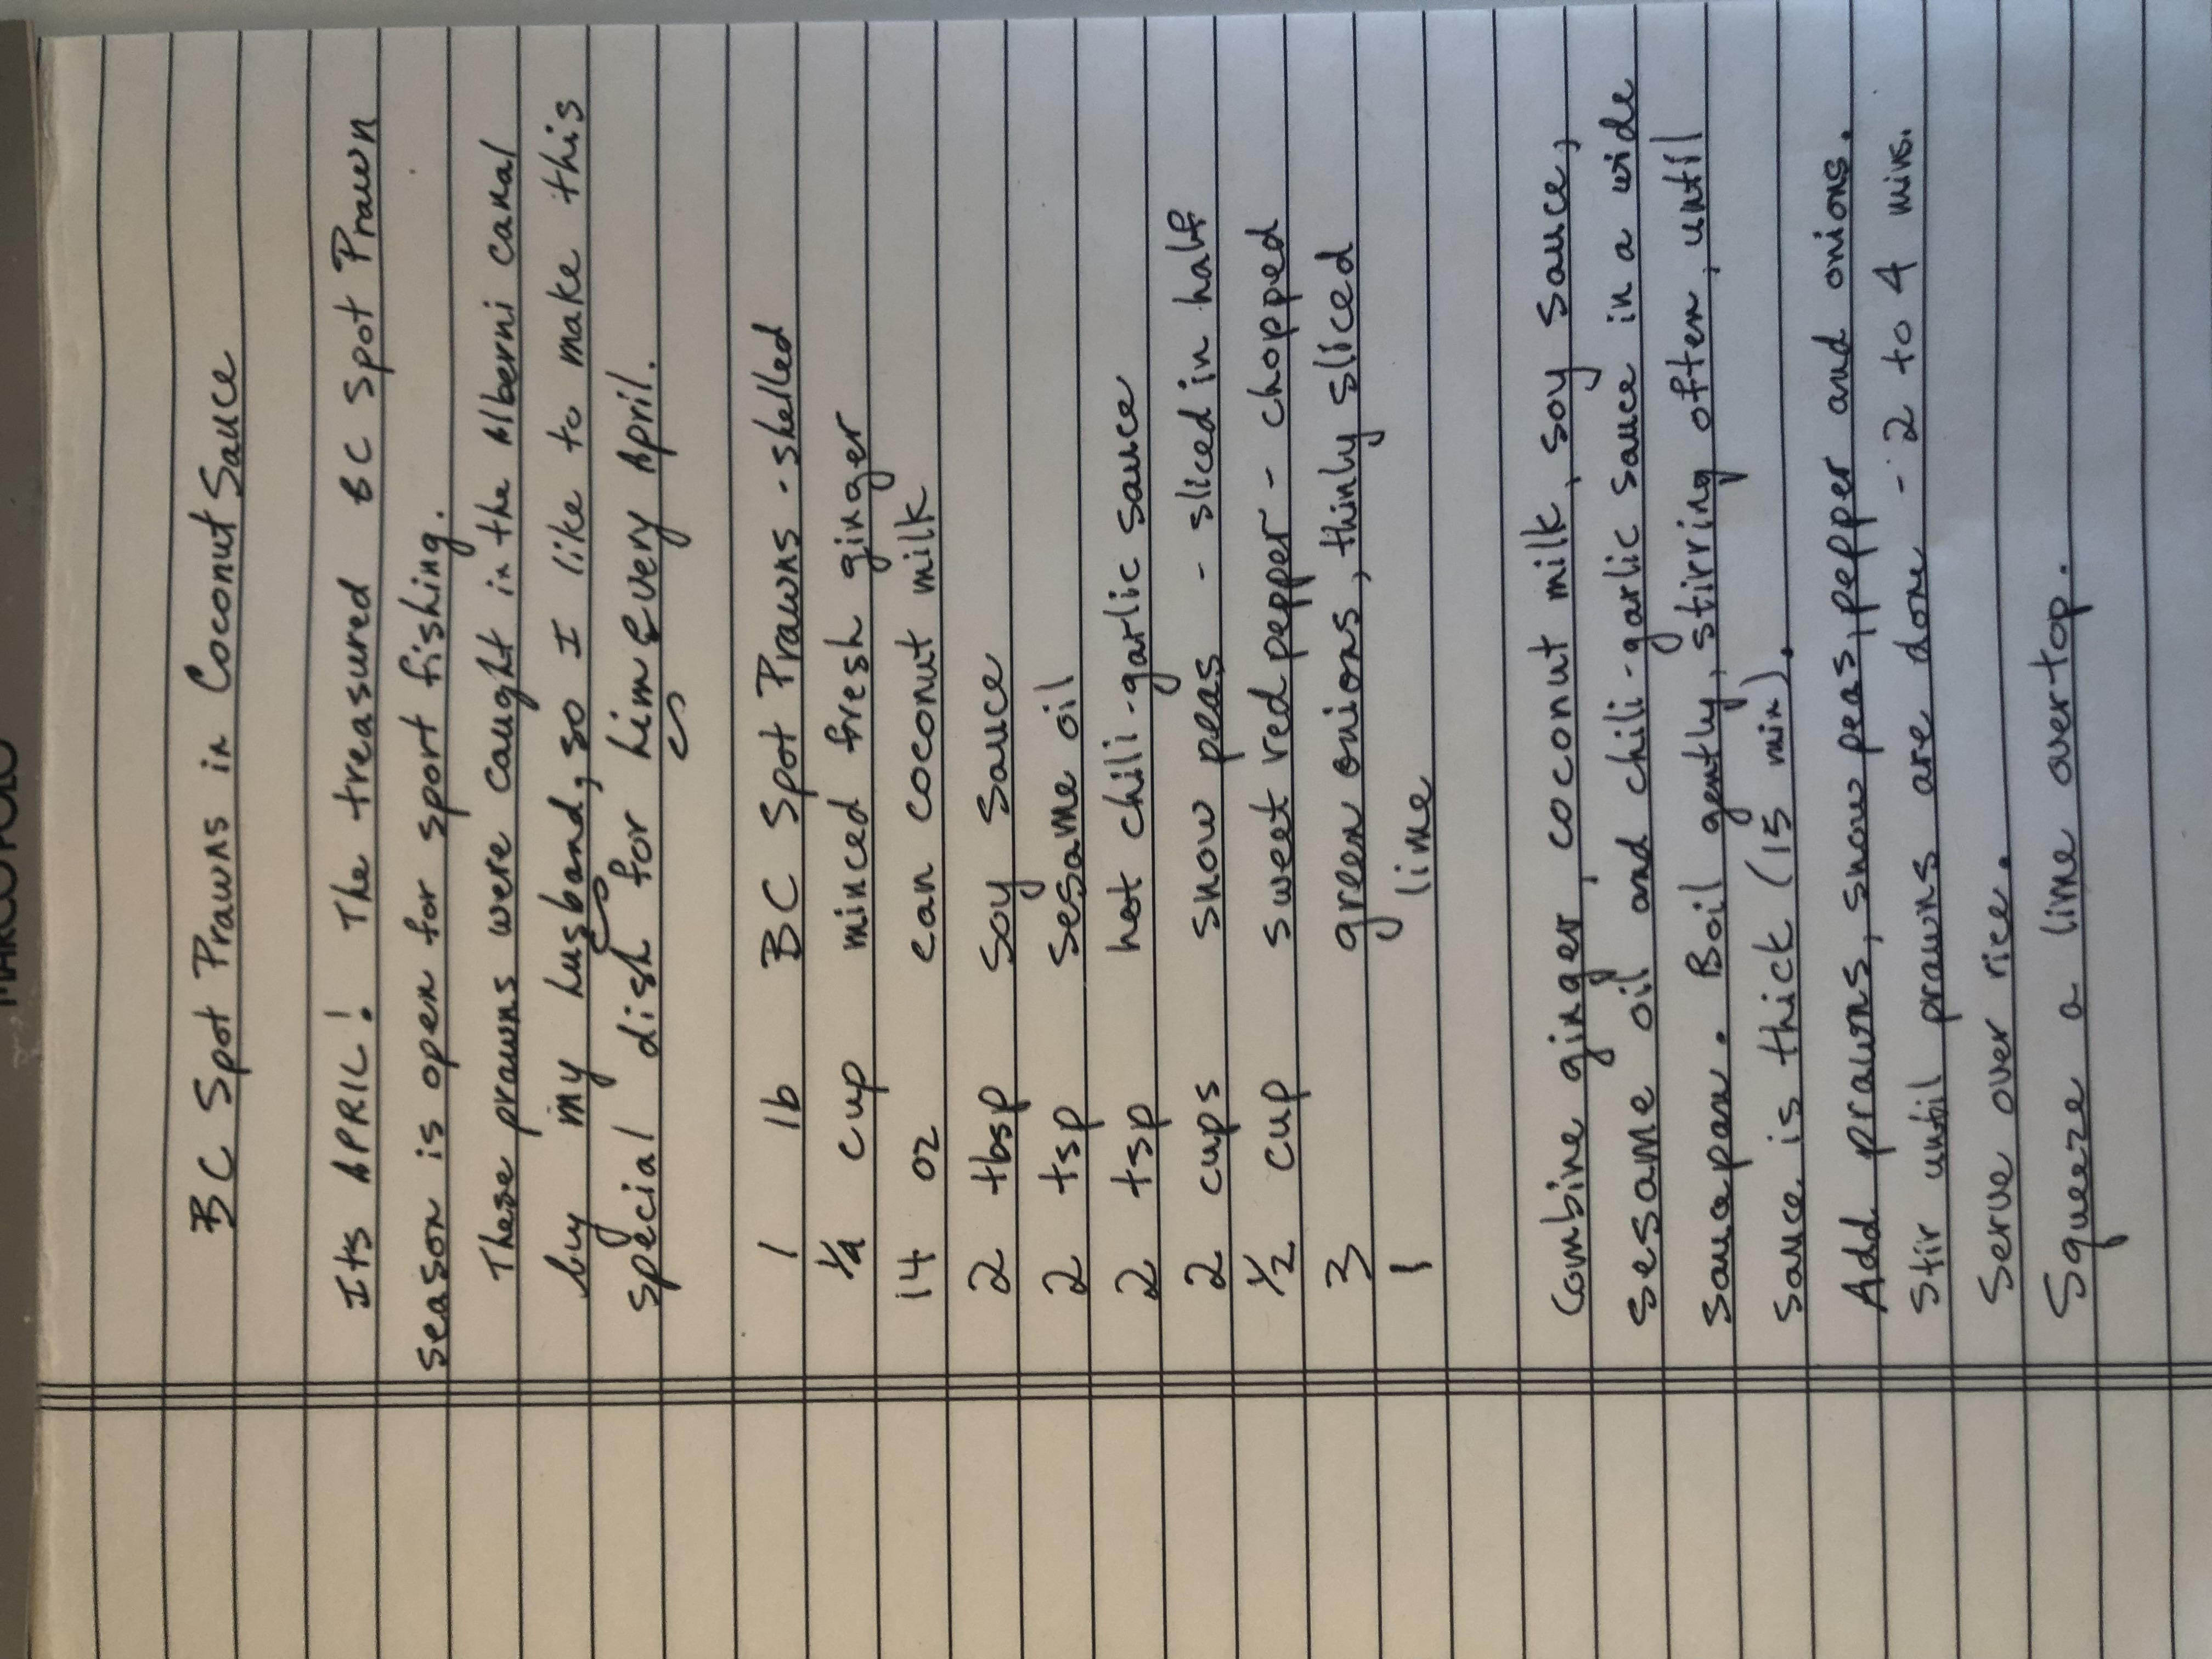 BC Spot Prawns in Coconut Sauce
Its APRIL! The treasured BC Spot Prawn
season is open for sport fishing.
These prawns were caught in the Alberni canal
by my husband, so I like to make this
special dish for him every April.
1 lb BC Spot Prawns - shelled
1/4 cup minced fresh ginger
14 oz can coconut milk
2 tbsp Soy Sauce
2 tsp sesame oil
2 tsp hot chili-garlic sauce
2 cups snow peas - sliced in half
1/2 cup sweet red pepper - chopped
3 green onions, thinly sliced
1 lime
Combine ginger, coconut milk, soy sauce,
sesame oil and chili-garlic sauce in a wide
sauce pan. Boil gently, stirring often, until
sauce is thick (15 min).
Add prawns, snow peas, pepper and onions.
Stir until prawns are done - 2 to 4 mins.
Serve over rice.
Squeeze a lime overtop.
MARCO POLO